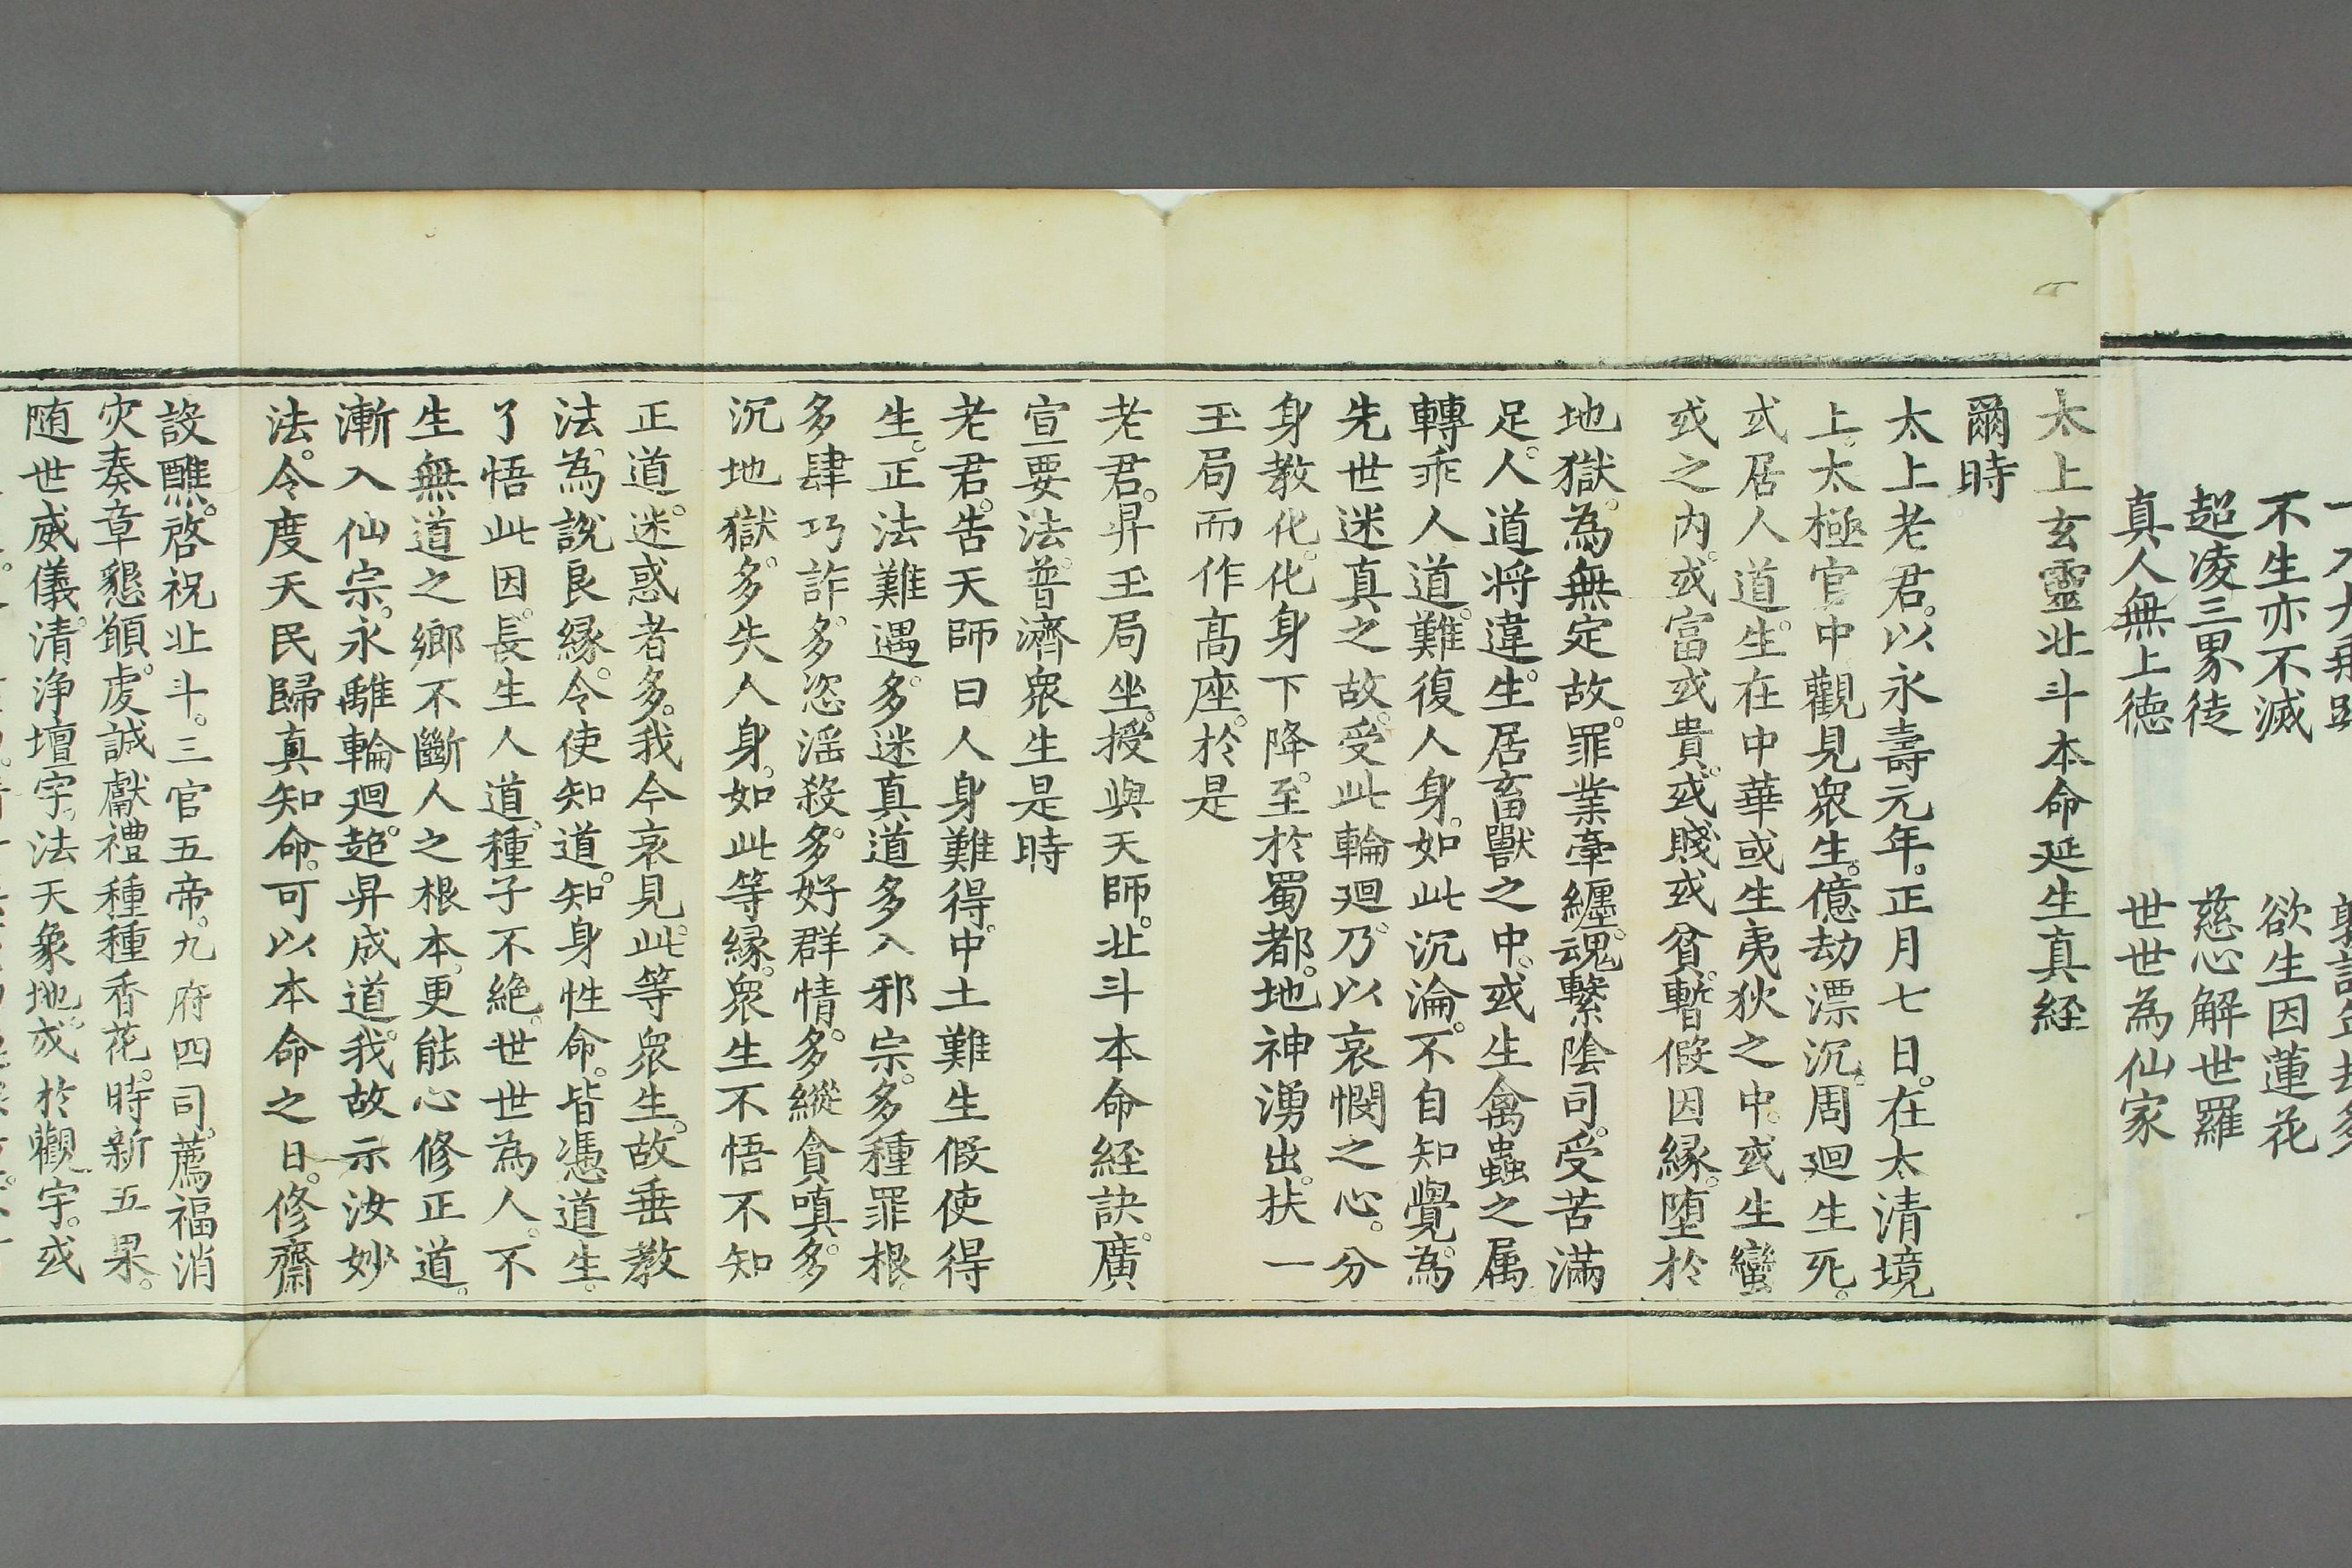 不生亦不滅　欲生因蓮花
超凌三界徒　慈心解世羅
真人無上徳　世世為仙家
太上玄靈北斗本命延生真経
爾時
太上老君。以永壽元年。正月七日。在太清境
上。太極宫中觀見衆生。億劫漂沉。周廻生死。
或居人道。生在中華或生夷狄之中。或生蠻
戎之内。或富或貴。或賤或貧。暫假因縁。墮於
地獄。為無定故。罪業牽纏。魂繫陰司。受苦滿
足。人道将違。生居畜獸之中。或生禽蟲之属
轉乖人道。難復人身。如此沉淪。不自知覺。為
先世迷真之故。受此輪廻。乃以哀憫之心。分
身教化。化身下降。至於蜀都。地神湧出。扶一
玉局而作髙座。於是
老君。昇玉局坐。授與天師。北斗本命経訣。廣
宣要法。普濟衆生是時
老君。告天師曰人身難得。中土難生假使得
生。正法難遇。多迷真道多入邪宗。多種罪根。
多肆巧詐。多恣淫殺。多好群情。多縱貪嗔。多
沉地獄。多失人身。如此等縁。衆生不悟不知
正道。迷惑者多。我今哀見此等衆生。故垂教
法。為說良縁。令使知道。知身性命。皆憑道生。
了悟此因。長生人道。種子不絶。世世為人。不
生無道之鄉不斷人之根本。更能心修正道。
漸入仙宗。永離輪廻。超昇成道。我故示汝妙
法。令度天民歸真知命。可以本命之日。修齋
設醮。啓祝北斗。三官五帝。九府四司。薦福消
灾奏章懇願。虔誠獻禮種種香花。時新五果。
随世威儀。清浄壇宇。法天象地。或於觀宇。或